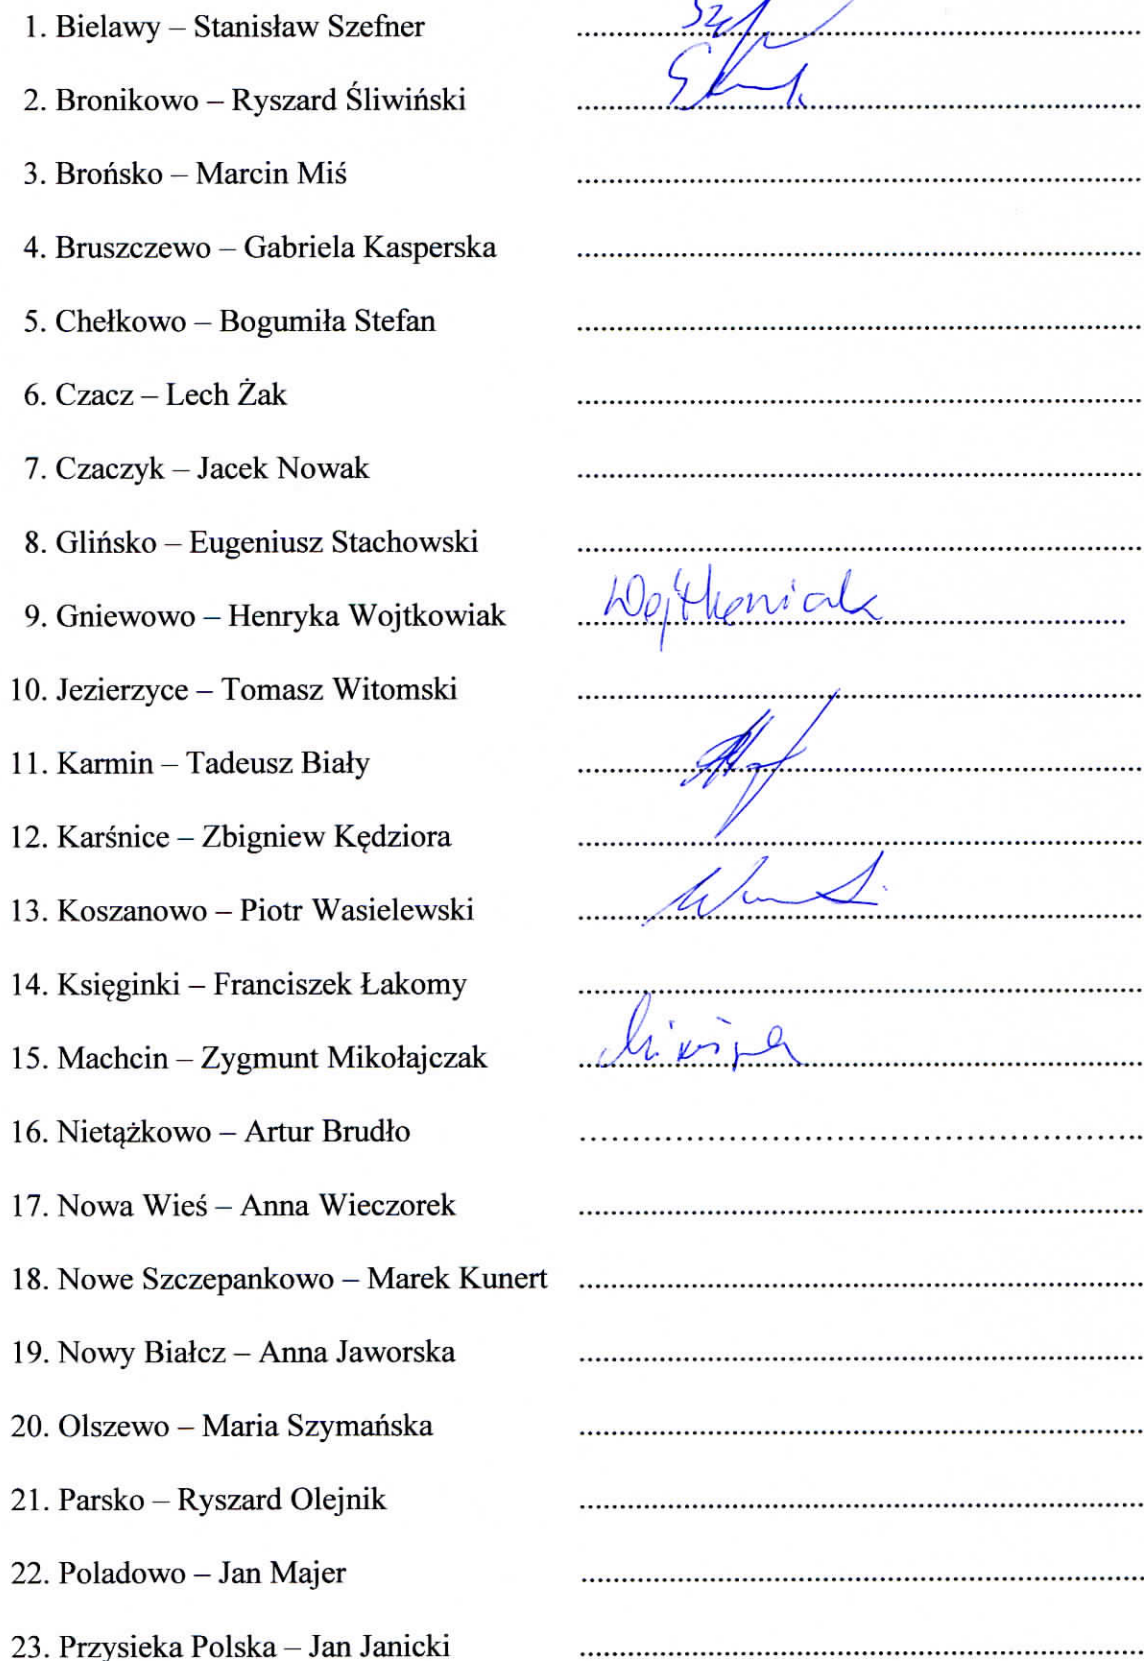 1. Bielawy – Stanisław Szefner ........................................
2. Bronikowo – Ryszard Śliwiński ........................................
3. Brońsko – Marcin Miś ........................................
4. Bruszczewo – Gabriela Kasperska ........................................
5. Chełkowo – Bogumiła Stefan ........................................
6. Czacz – Lech Żak ........................................
7. Czaczyk – Jacek Nowak ........................................
8. Glińsko – Eugeniusz Stachowski ........................................
9. Gniewowo – Henryka Wojtkowiak Wojtkowiak
10. Jezierzyce – Tomasz Witomski ........................................
11. Karmin – Tadeusz Biały ........................................
12. Karśnice – Zbigniew Kędziora ........................................
13. Koszanowo – Piotr Wasielewski ........................................
14. Księginki – Franciszek Łakomy ........................................
15. Machcin – Zygmunt Mikołajczak ........................................
16. Nietążkowo – Artur Brudło ........................................
17. Nowa Wieś – Anna Wieczorek ........................................
18. Nowe Szczepankowo – Marek Kunert ........................................
19. Nowy Białcz – Anna Jaworska ........................................
20. Olszewo – Maria Szymańska ........................................
21. Parsko – Ryszard Olejnik ........................................
22. Poladowo – Jan Majer ........................................
23. Przysieka Polska – Jan Janicki ........................................